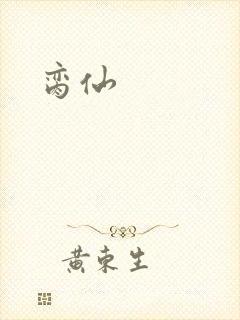 脔仙
黄東生